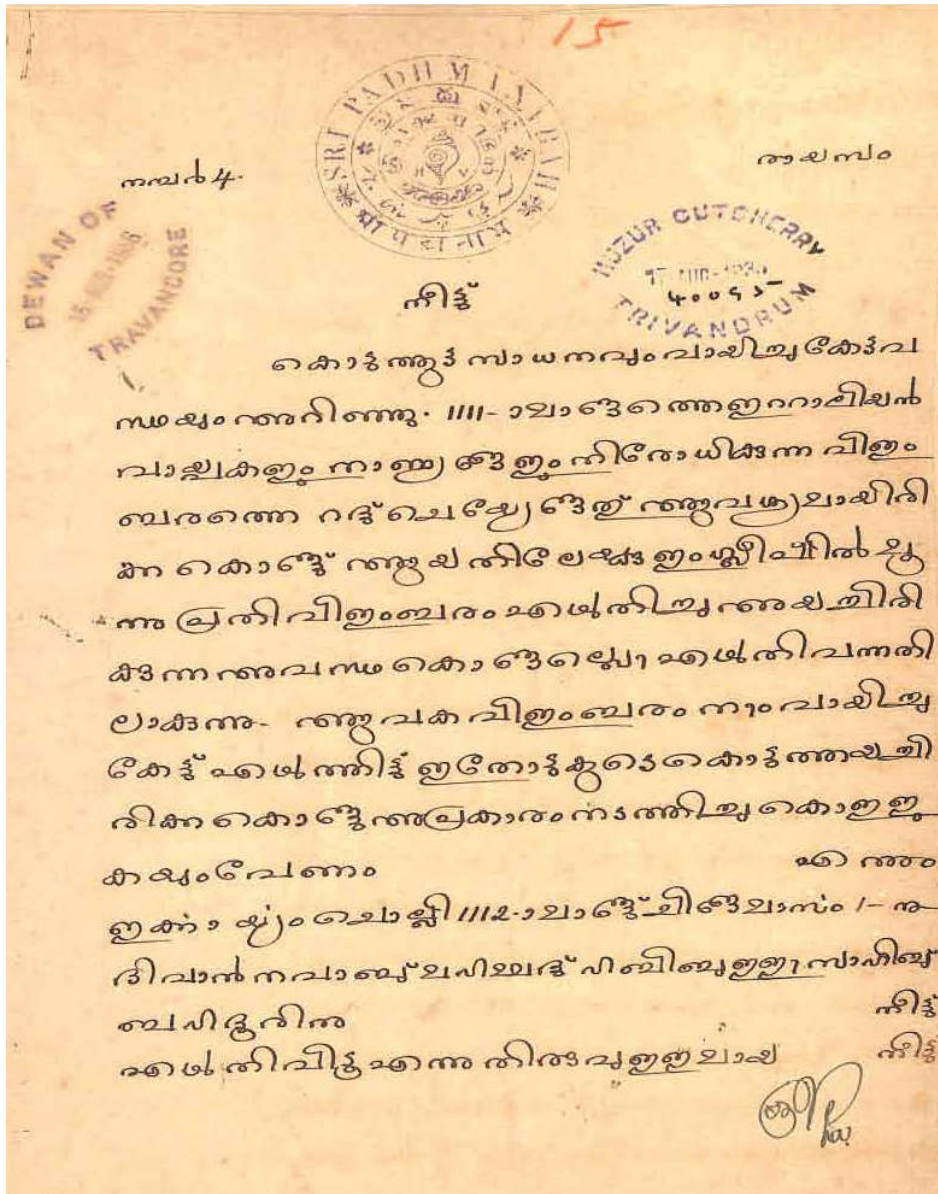 15
SRI PADHMANABAH
श्री पद्मनाभ
നമ്പർ 4.
രായസം
DEWAN OF
TRAVANCORE
HUZUR CUTCHERRY
17 AUG 1936
TRIVANDRUM
നീട്ട്
കൊടുത്തുട്ട സാധനവും വായിച്ചു കേട്ടവ
സ്ഥയും അറിഞ്ഞു. 1111-ാമാണ്ടത്തെ ഇററാലിയൻ
വായ്പകളും നാണ്യങ്ങളും നിരോധിക്കുന്ന വിളം
ബരത്തെ റദ്ദ് ചെയ്യേണ്ടത് ആവശ്യമായിരി
ക്ക കൊണ്ട് ആയതിലേയ്ക്കു ഇംഗ്ലീഷിൽ മൂ
ന്നു പ്രതി വിളംബരം എഴുതിച്ചു അയച്ചിരി
ക്കുന്ന അവസ്ഥ കൊണ്ടല്ലൊ എഴുതി വന്നതി
ലാകുന്നു- ആ വക വിളംബരം നാം വായിച്ചു
കേട്ട് എഴുത്തിട്ട് ഇതോടുകൂടെ കൊടുത്തയച്ചി
രിക്ക കൊണ്ടു അപ്രകാരം നടത്തിച്ചു കൊള്ളു
കയും വേണം എന്നും
ഇക്കാര്യം ചൊല്ലി 1112-ാമാണ്ട് ചിങ്ങമാസം 1-നു
ദിവാൻ നവാബ് മഹമ്മദ് ഹബീബുള്ളാ സാഹിബ്
ബഹദൂരിനു നീട്ട്
എഴുതിവിട്ടു എന്നു തിരുവുള്ളമായ നീട്ട്